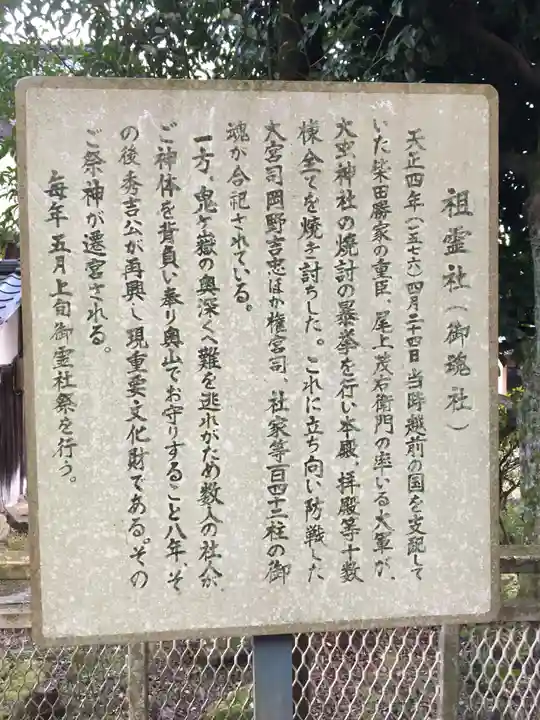 祖霊社(御魂社)
天正四年(一五七六)四月二十四日当時越前の国を支配して
いた柴田勝家の重臣、尾上茂右衛門の率いる大軍が、
大虫神社の焼討の暴挙を行い本殿、拝殿等十数
棟全てを焼き討ちした。これに立ち向い防戦した
大宮司岡野吉忠ほか権宮司、社家等百四十二柱の御
魂が合祀されている。
一方、鬼ヶ嶽の奥深くへ難を逃れがため数人の社人が、
ご神体を背負い奉り奥山でお守りすること八年、そ
の後秀吉公が再興し現重要文化財である。その
ご祭神が遷宮される。
毎年五月上旬御霊社祭を行う。